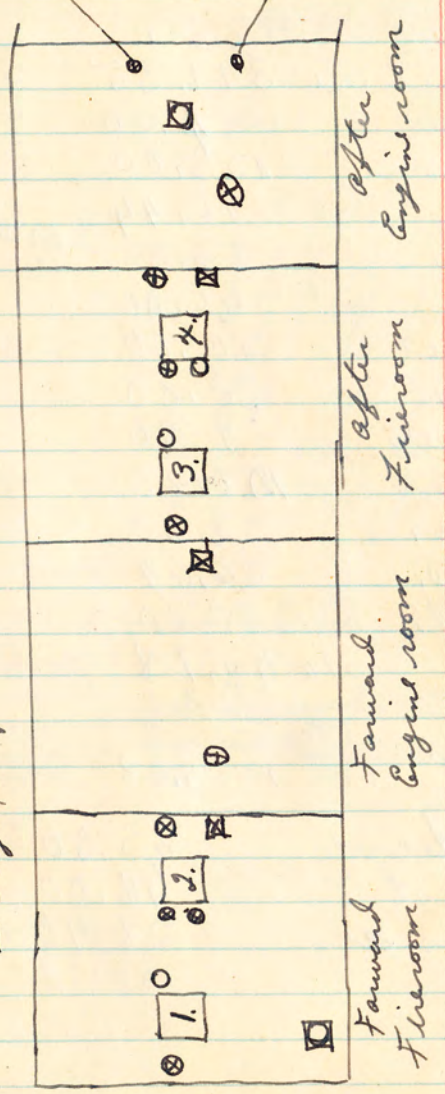 1.
2.
3.
4.
Forward
Fireroom
Forward
Engine room
After
Fireroom
After
Engine room